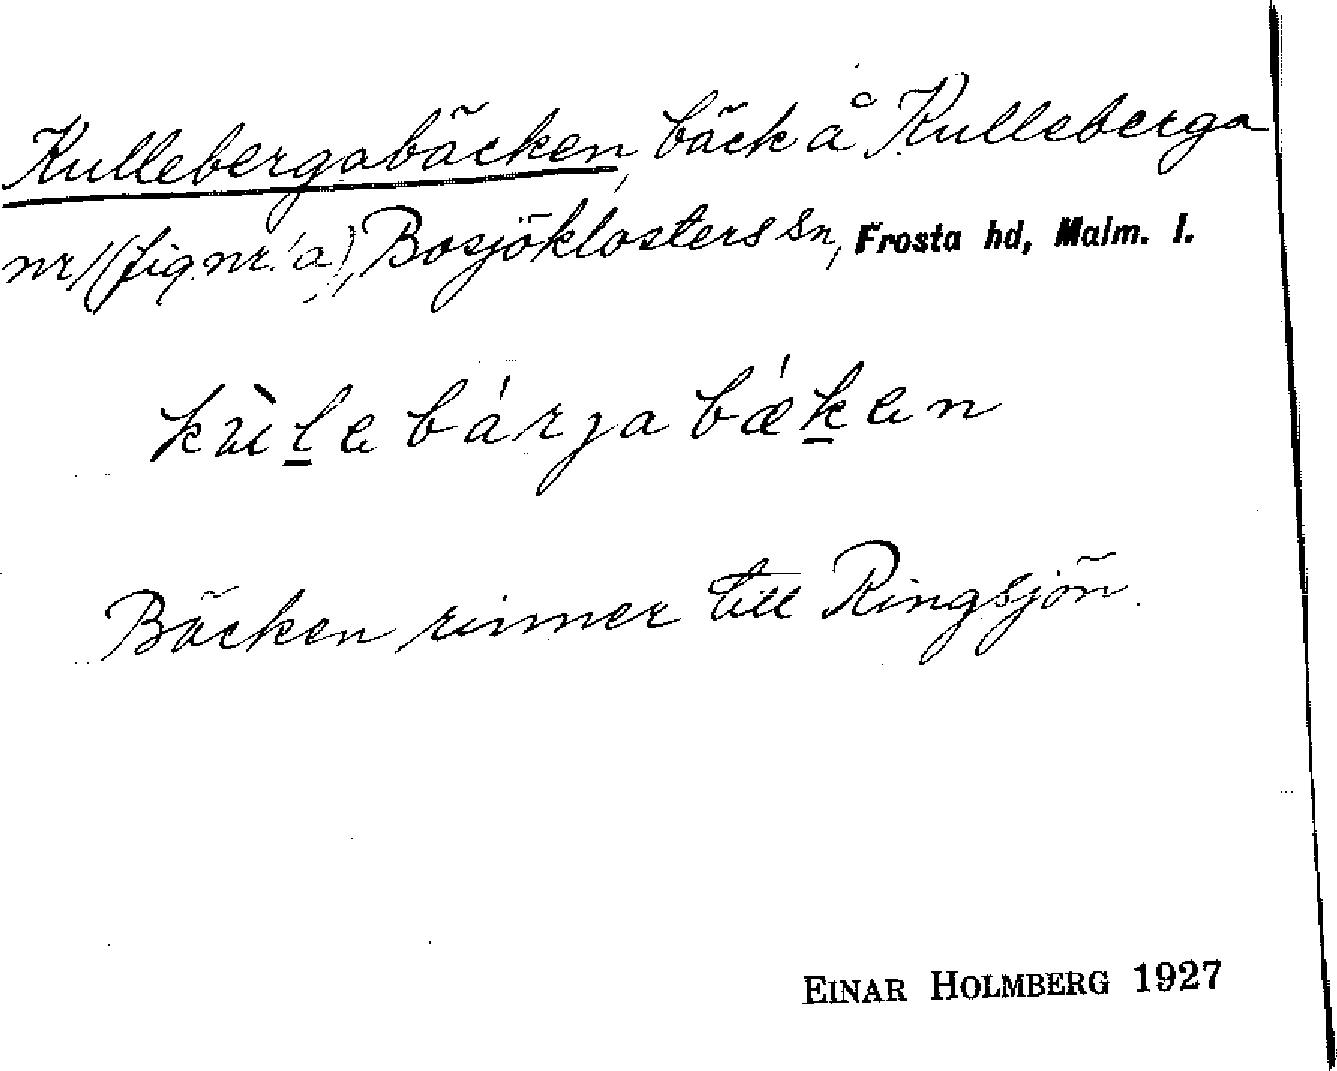 Kullebergabäcken, bäck å Kulleberga
nr 1 (fig.nr. a), Bosjöklosters sn, Frosta hd, Malm. l.
kùle bárja bǽken
Bäcken rinner till Ringsjön.
EINAR HOLMBERG 1927